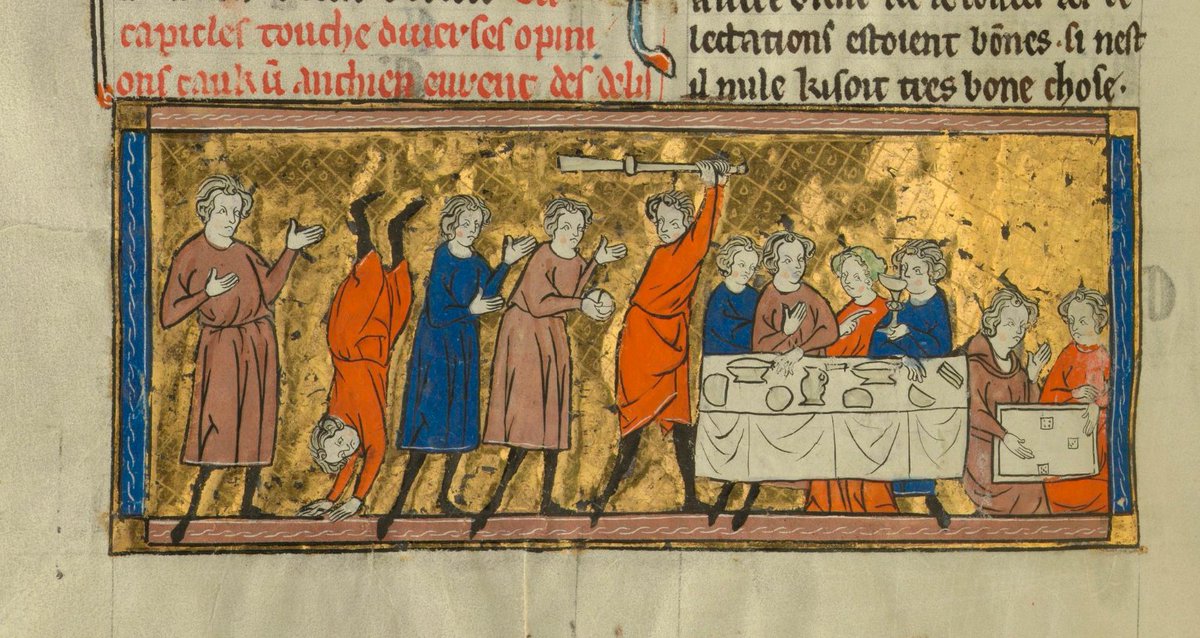 capitles touche diuerses opini
ons caukũ anchien eurent des delis
lectations estoient bõnes · si nest
il nule ki soit tres bone chose ·